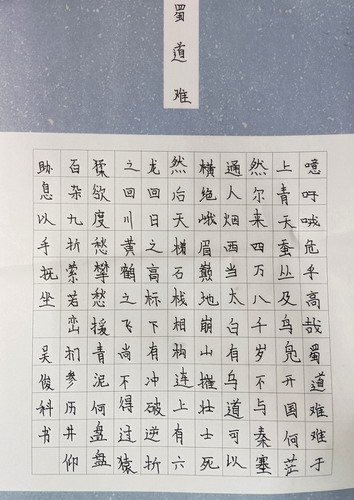 蜀道难
噫吁哦危乎高哉蜀道难难于
上青天蚕丛及鸟凫开国何茫
然尔来四万八千岁不与秦塞
通人烟西当太白有鸟道可以
横绝峨眉巅地崩山摧壮士死
然后天梯石栈相构连上有六
龙回日之高标下有冲破逆折
之回川黄鹤之飞尚不得过猿
猱欲度愁攀愁援青泥何盘盘
百杂九折萦若峦扪参历井仰
胁息以手抚坐 吴俊科书